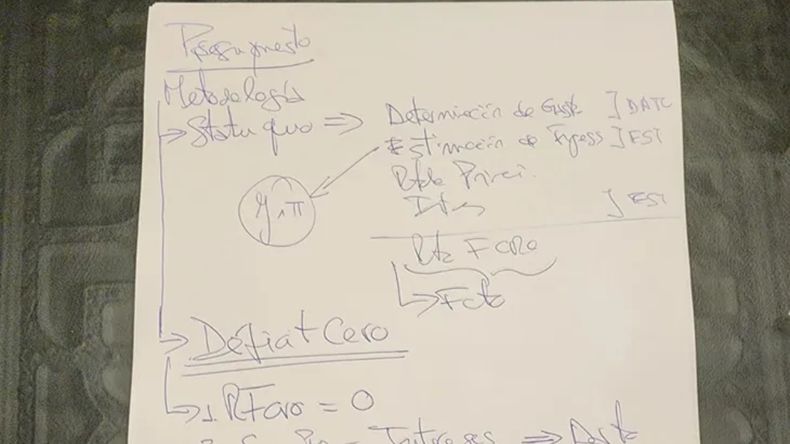 Presupuesto
Metodología
→ Statu quo ⇒
Determinación de Gasto ] DATO
Estimación de Ingresos ] EST
Rtdo Princi.
Inter ] EST
Rtdo
ŷ, π
→ Déficit Cero
→ 1. RFcro = 0
= Intereses ⇒